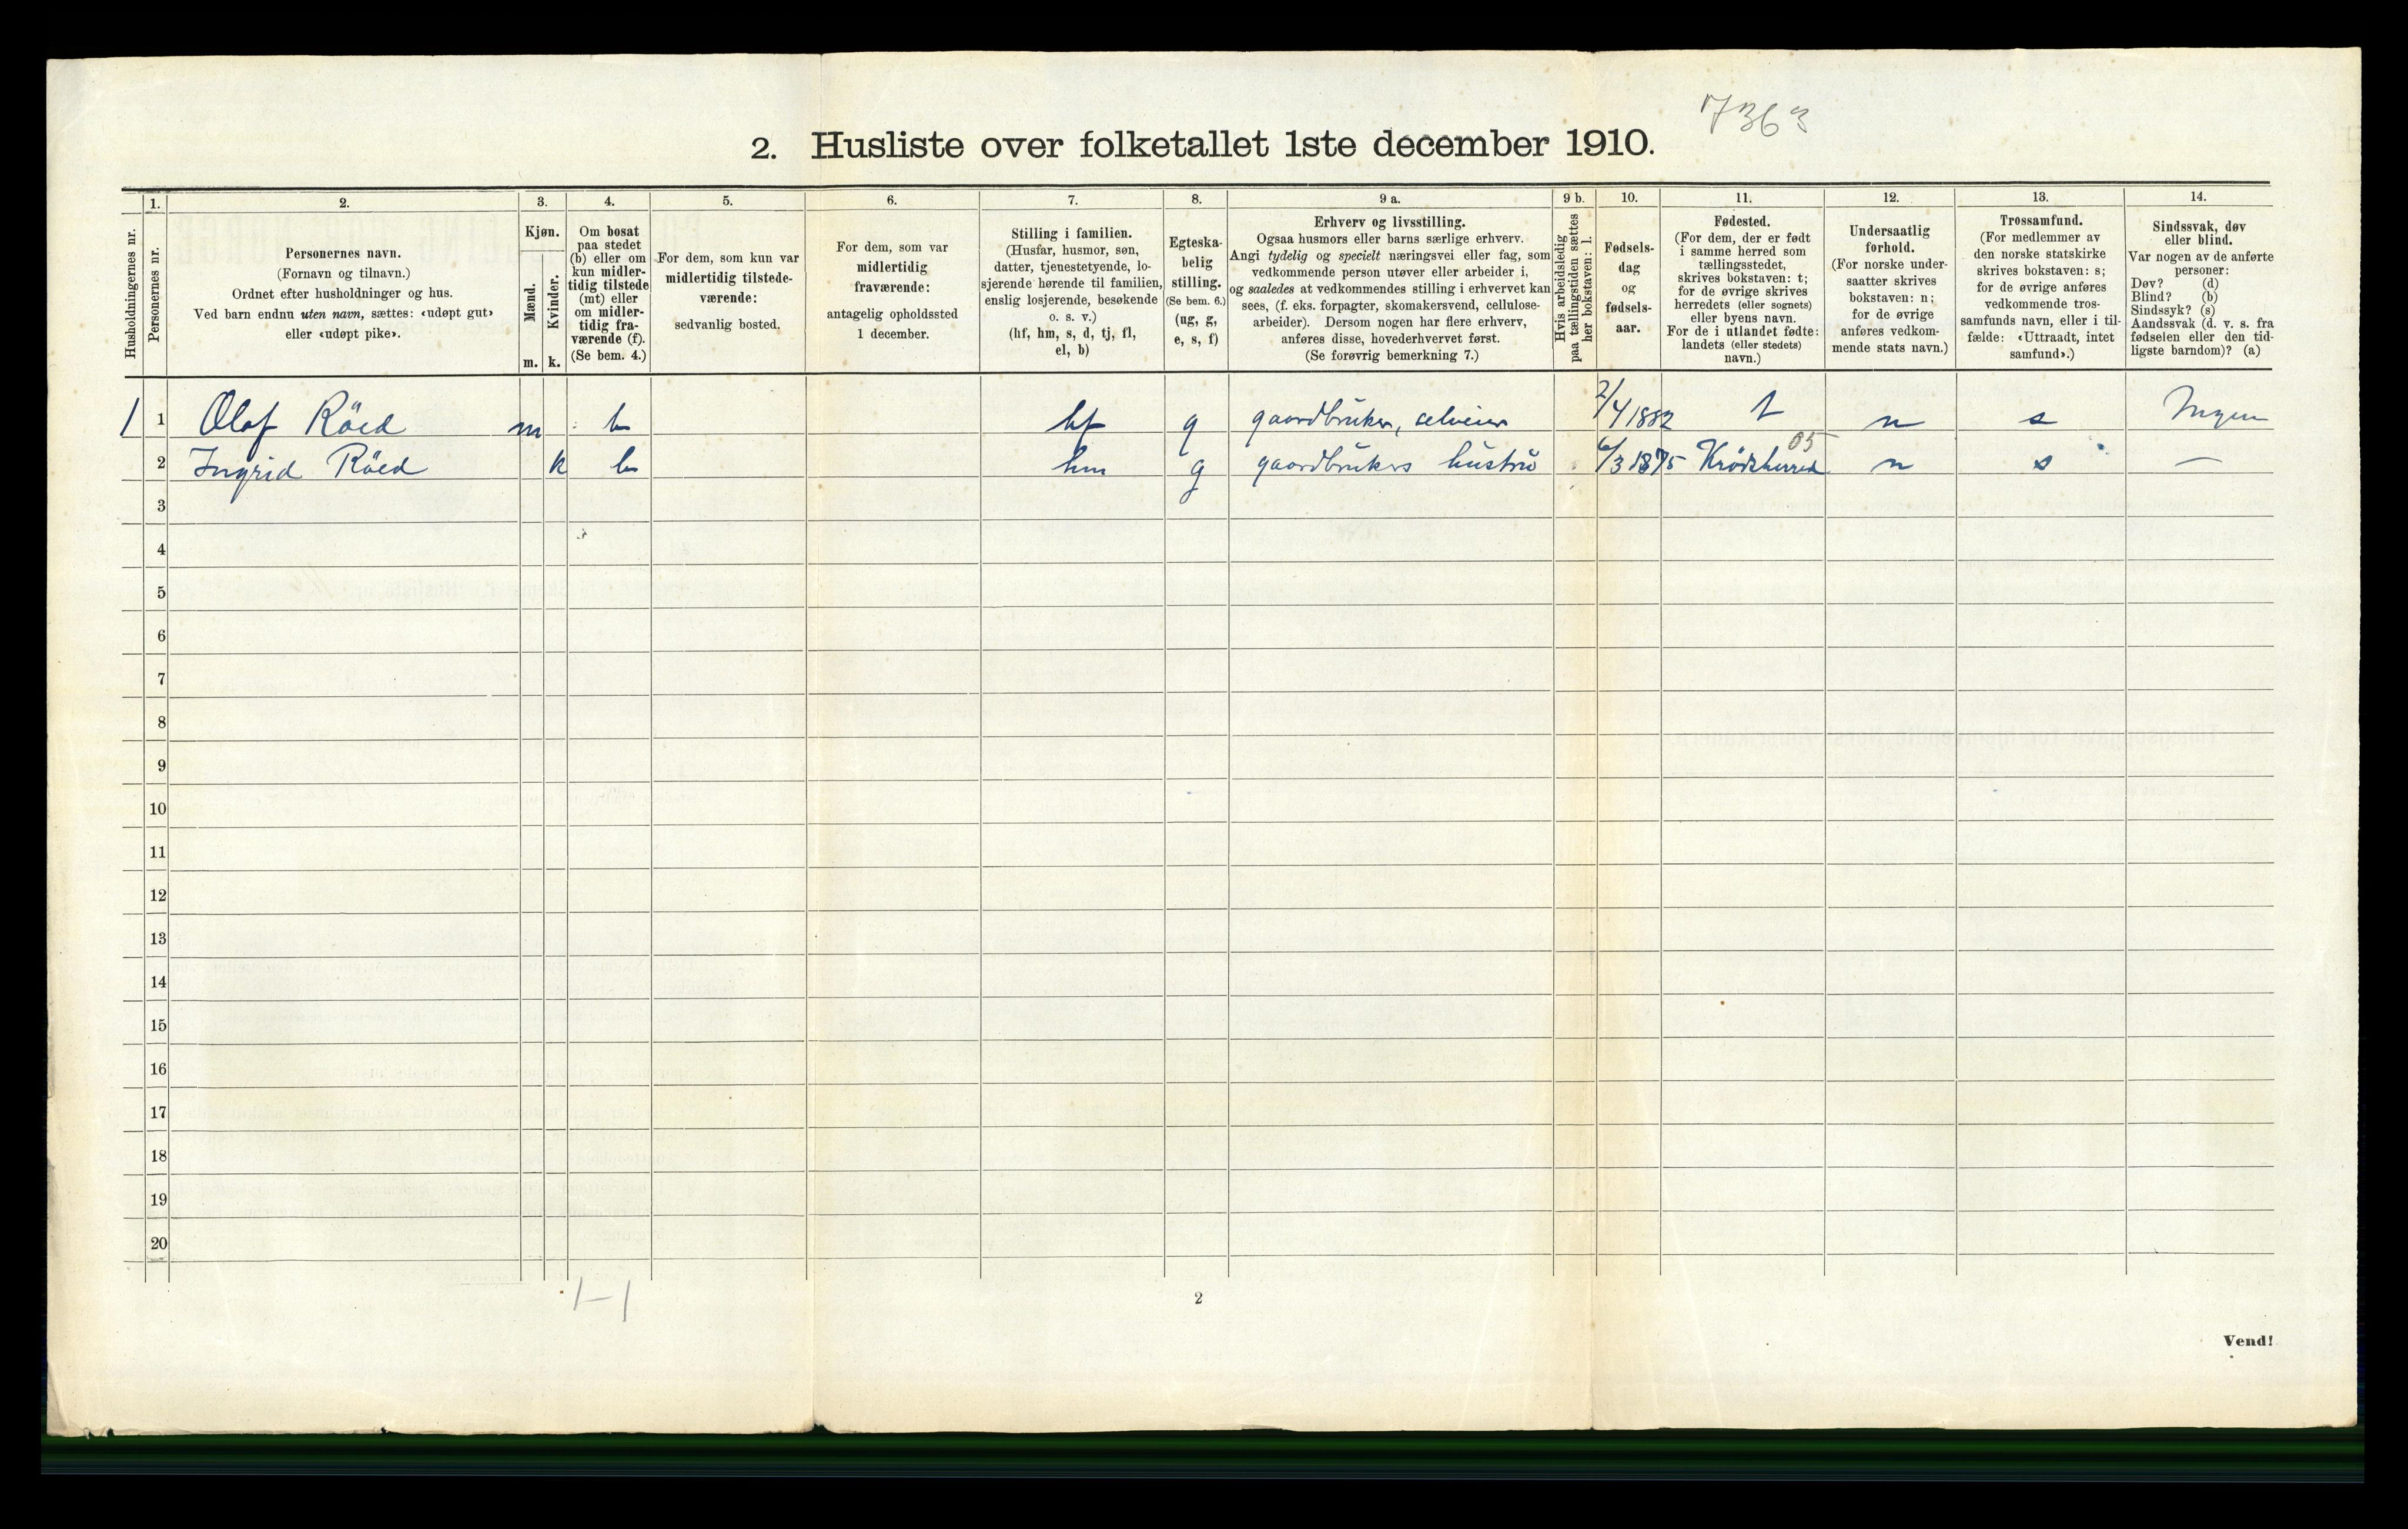 7363
2. Husliste over folketallet 1ste december 1910.
Husholdningernes nr.
1.
Personernes nr.
2.
Personernes navn.
(Fornavn og tilnavn.)
Ordnet efter husholdninger og hus.
Ved barn endnu uten navn, sættes: «udøpt gut»
eller «udøpt pike».
3.
Kjøn.
Mænd.
Kvinder.
m. k.
4.
Om bosat
paa stedet
(b) eller om
kun midler-
tidig tilstede
(mt) eller
om midler-
tidig fra-
værende (f).
(Se bem. 4.)
5.
For dem, som kun var
midlertidig tilstede-
værende:
sedvanlig bosted.
6.
For dem, som var
midlertidig
fraværende:
antagelig opholdssted
1 december.
7.
Stilling i familien.
(Husfar, husmor, søn,
datter, tjenestetyende, lo-
sjerende hørende til familien,
enslig losjerende, besøkende
o. s. v.)
(hf, hm, s, d, tj, fl,
el, b)
8.
Egteska-
belig
stilling.
(Se bem. 6.)
(ug, g,
e, s, f)
9 a.
Erhverv og livsstilling.
Ogsaa husmors eller barns særlige erhverv.
Angi tydelig og specielt næringsvei eller fag, som
vedkommende person utøver eller arbeider i,
og saaledes at vedkommendes stilling i erhvervet kan
sees, (f. eks. forpagter, skomakersvend, cellulose-
arbeider). Dersom nogen har flere erhverv,
anføres disse, hovederhvervet først.
(Se forøvrig bemerkning 7.)
9 b.
Hvis arbeidsledig
paa tællingstiden sættes
her bokstaven: l.
10.
Fødsels-
dag
og
fødsels-
aar.
11.
Fødested.
(For dem, der er født
i samme herred som
tællingsstedet,
skrives bokstaven: t;
for de øvrige skrives
herredets (eller sognets)
eller byens navn.
For de i utlandet fødte:
landets (eller stedets)
navn.)
12.
Undersaatlig
forhold.
(For norske under-
saatter skrives
bokstaven: n;
for de øvrige
anføres vedkom-
mende stats navn.)
13.
Trossamfund.
(For medlemmer av
den norske statskirke
skrives bokstaven: s;
for de øvrige anføres
vedkommende tros-
samfunds navn, eller i til-
fælde: «Uttraadt, intet
samfund».)
14.
Sindssvak, døv
eller blind.
Var nogen av de anførte
personer:
Døv? (d)
Blind? (b)
Sindssyk? (s)
Aandssvak (d. v. s. fra
fødselen eller den tid-
ligste barndom)? (a)
1 1 Olaf Röed m b hf g gaardbruker, selveier 2/4 1882 t n s Ingen
2 Ingrid Röed k b hm g gaardbrukers hustru 6/3 1875 Krödsherred 05 n s —
3
4
5
6
7
8
9
10
11
12
13
14
15
16
17
18
19
20
1-1
2
Vend!